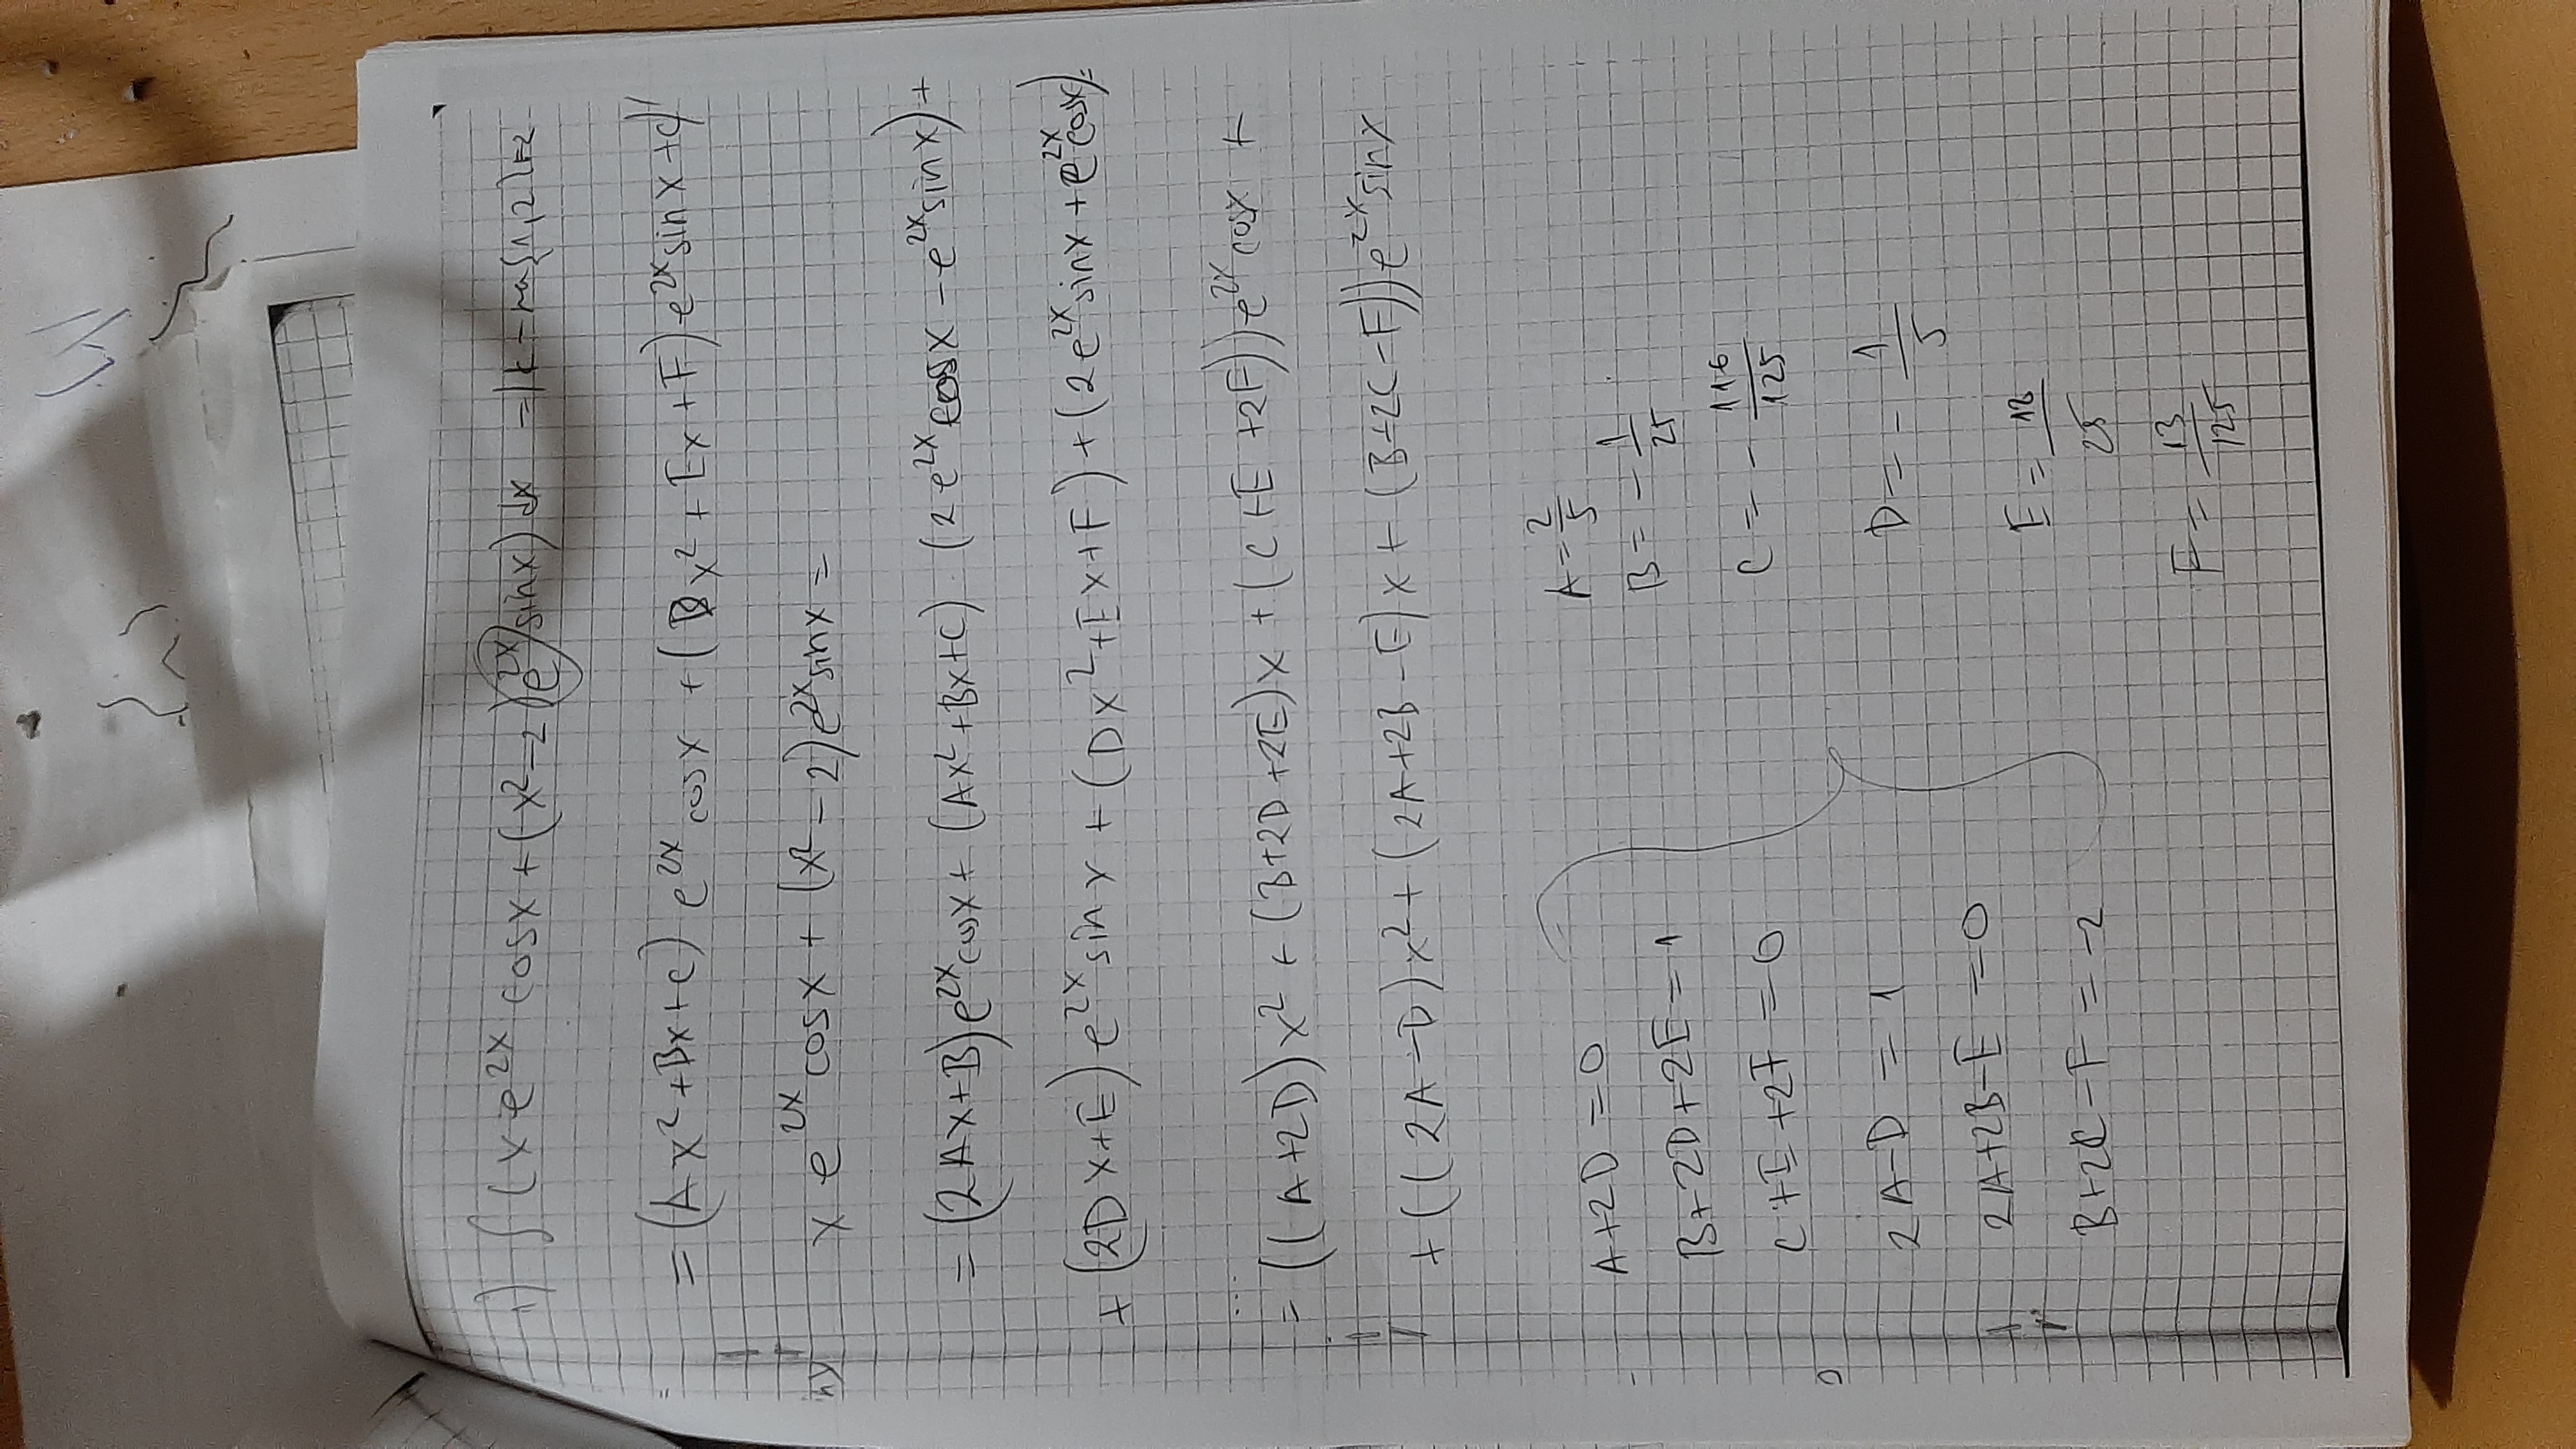 1) ∫ (x e^{2x} cosx + (x² - 2) e^{2x} sinx) dx = | k =
= (Ax² + Bx + C) e^{2x} cosx + (Dx² + Ex + F) e^{2x} sinx + C)'
x e^{2x} cosx + (x² - 2) e^{2x} sinx =
= (2Ax + B) e^{2x} cosx + (Ax² + Bx + C) · (2e^{2x} cosx - e^{2x} sinx) +
+ (2Dx + E) e^{2x} sinx + (Dx² + Ex + F) + (2e^{2x} sinx + e^{2x} cosx) =
...
= ((A + 2D)x² + (B + 2D + 2E)x + (C + E + 2F)) e^{2x} cosx +
+ ((2A - D)x² + (2A + 2B - E)x + (B + 2C - F)) e^{2x} sinx
A + 2D = 0
B + 2D + 2E = 1
C + E + 2F = 0
2A - D = 1
2A + 2B - E = 0
B + 2C - F = -2
A = 2/5
B = - 1/25
C = - 116/125
D = - 1/5
E = 18/25
F = 13/125